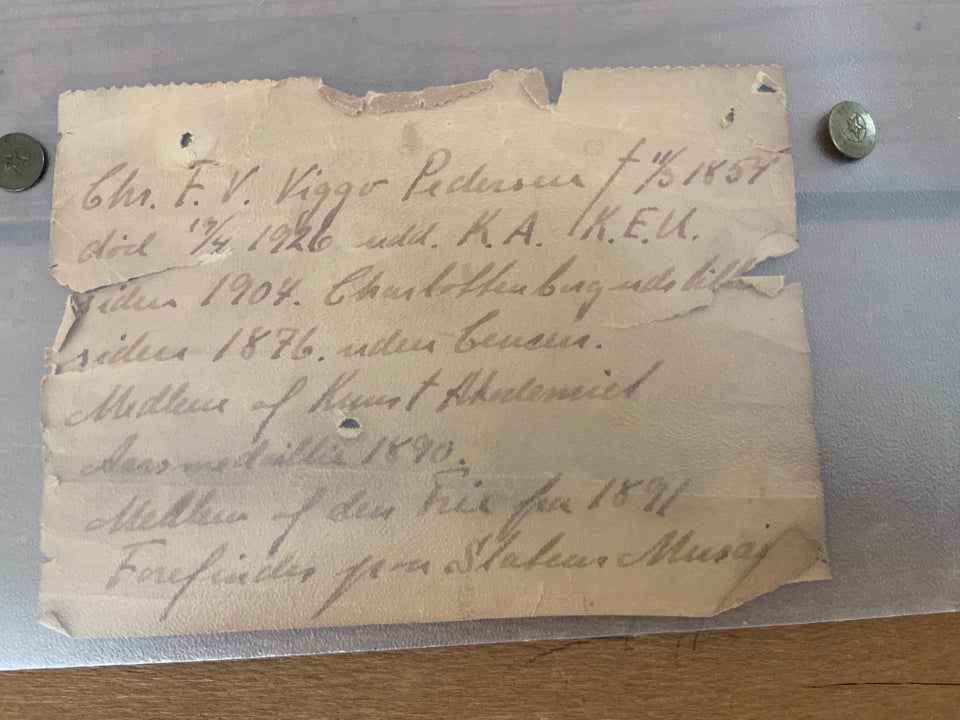 Chr. F. V. Viggo Pedersen f 11/3 1854
død 19/4 1926 udd. K. A. K.E.U.
siden 1904. Charlottenborg udstill
siden 1876. uden Censur.
Medlem af Kunst Akademiet
Aarsmedaillie 1890.
Medlem af den Frie fra 1891
Forefindes paa Statens Musæ